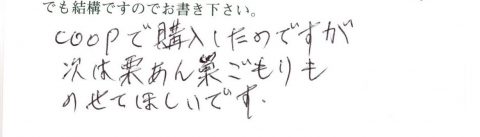 でも結構ですのでお書き下さい。
COOPで購入したのですが
次は栗あん巣ごもりも
のせてほしいです.